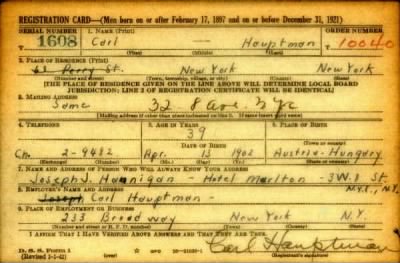 REGISTRATION CARD—(Men born on or after February 17, 1897 and on or before December 31, 1921)
SERIAL NUMBER 1. NAME (Print) ORDER NUMBER
1608 Carl Hauptman 10040
(First) (Middle) (Last)
2. PLACE OF RESIDENCE (Print)
Perry St. New York New York
(Number and street) (Town, township, village, or city) (County) (State)
[THE PLACE OF RESIDENCE GIVEN ON THE LINE ABOVE WILL DETERMINE LOCAL BOARD
JURISDICTION; LINE 2 OF REGISTRATION CERTIFICATE WILL BE IDENTICAL]
3. MAILING ADDRESS
Same 32 8 Ave. NYC
[Mailing address if other than place indicated on line 2. If same insert word same]
4. TELEPHONE 5. AGE IN YEARS 6. PLACE OF BIRTH
39
DATE OF BIRTH
Ch. 2-9482 Apr. 13 1902 Austria-Hungary
(Exchange) (Number) (Mo.) (Day) (Yr.) (State or country)
7. NAME AND ADDRESS OF PERSON WHO WILL ALWAYS KNOW YOUR ADDRESS
Joseph J. Hannigan - Hotel Marlton - 3 W. 8 St.
8. EMPLOYER'S NAME AND ADDRESS N.Y.C., N.Y.
Joseph Carl Hauptman-
9. PLACE OF EMPLOYMENT OR BUSINESS
233 Broadway New York N.Y.
(Number and street or R. F. D. number) (Town) (County) (State)
I AFFIRM THAT I HAVE VERIFIED ABOVE ANSWERS AND THAT THEY ARE TRUE.
D. S. S. Form 1
(Revised 1-1-42) (over) Carl Hauptman